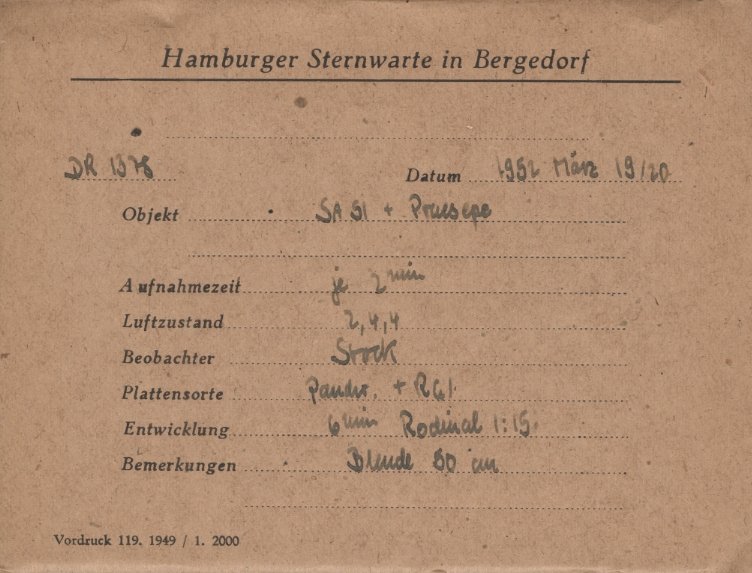 Hamburger Sternwarte in Bergedorf
DR 1378 Datum 1952 März 19/20
Objekt SA 51 + Praesepe
Aufnahmezeit je 2 min
Luftzustand 2,4,4
Beobachter Stock
Plattensorte Panchr. + RG1
Entwicklung 6 min Rodinal 1:15
Bemerkungen Blende 50 cm
Vordruck 119. 1949 / 1. 2000